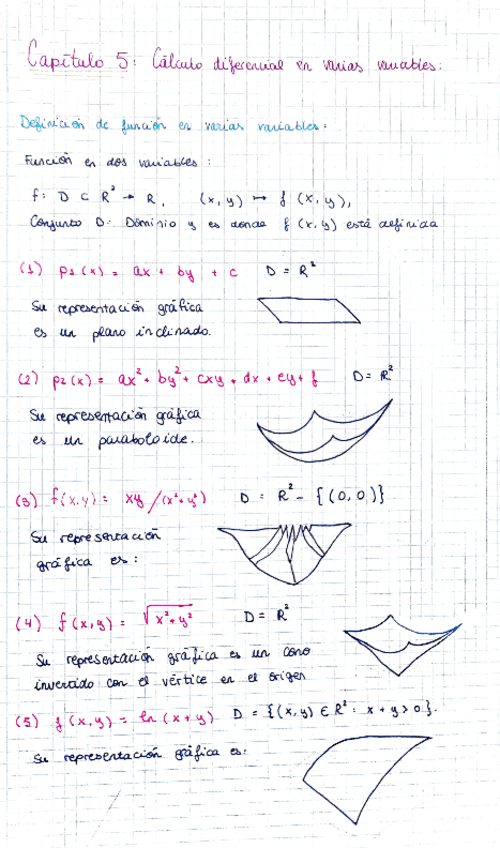 Capítulo 5: Cálculo diferencial en varias variables.
Definición de función en varias variables:
Función en dos variables:
f: D ⊂ R² → R, (x, y) ↦ f (x, y),
Conjunto D: Dominio y es donde f (x, y) está definida
(1) p1 (x) = ax + by + c D = R²
Su representación gráfica
es un plano inclinado.
(2) p2 (x) = ax² + by² + cxy + dx + ey + f D = R²
Su representación gráfica
es un paraboloide.
(3) f(x, y) = xy / (x² + y²) D = R² - {(0, 0)}
Su representación
gráfica es:
(4) f(x, y) = √x² + y² D = R²
Su representación gráfica es un cono
invertido con el vértice en el origen
(5) f(x, y) = ln (x + y) D = {(x, y) ∈ R² : x + y > 0}.
Su representación gráfica es: